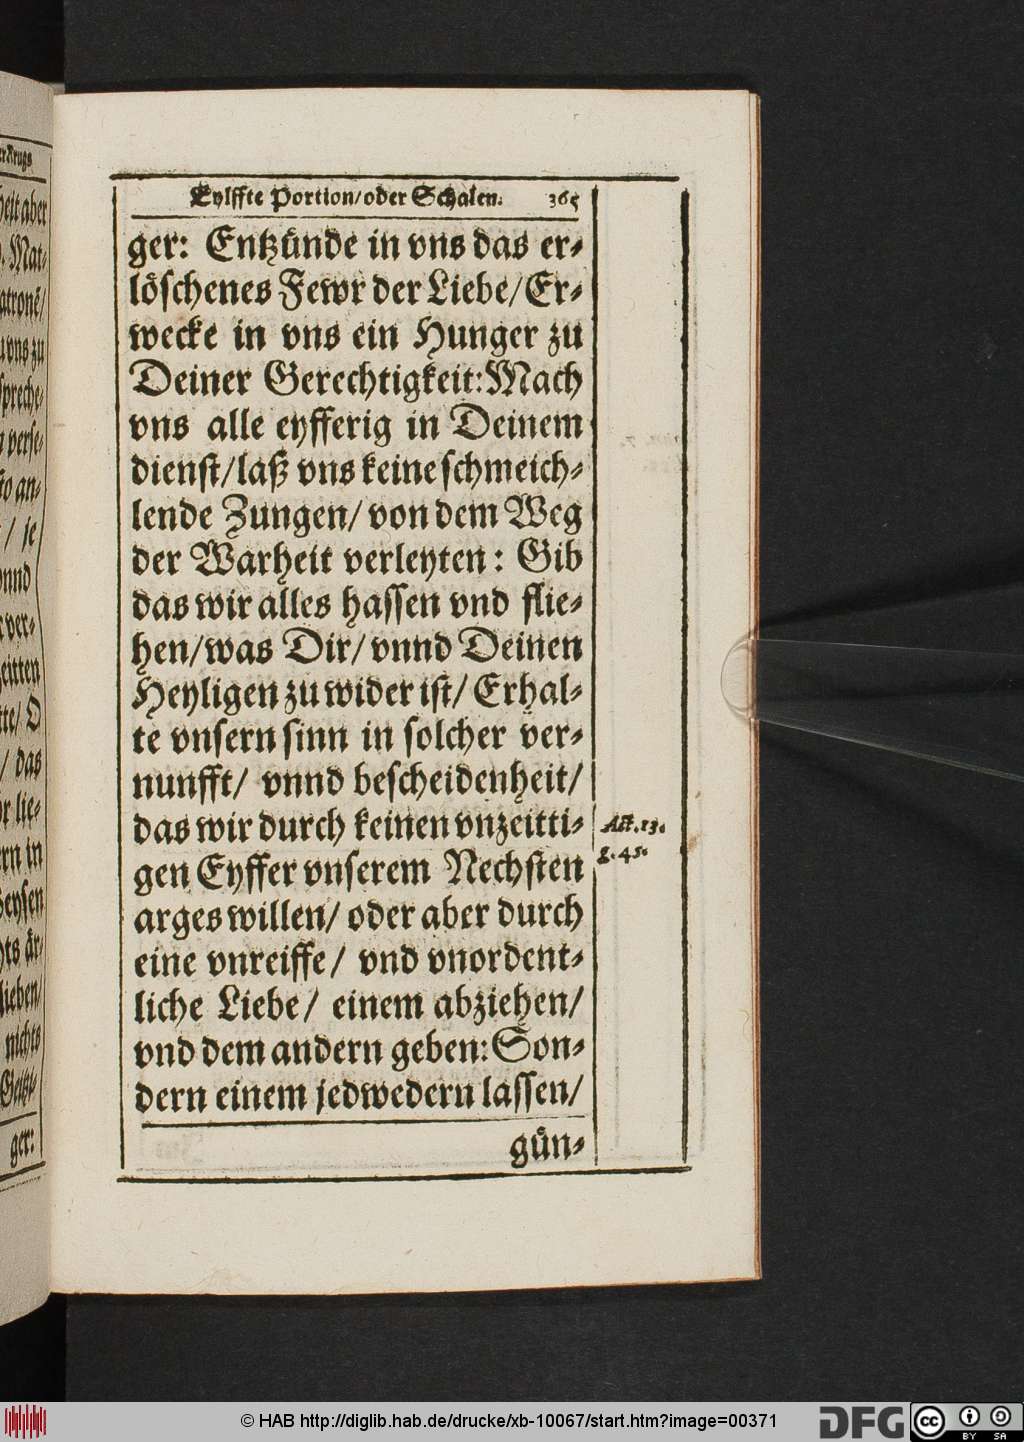 Eylffte Portion/oder Schalen. 365
ger: Entzünde in vns das er-
löschenes Fewr der Liebe/Er-
wecke in vns ein Hunger zu
Deiner Gerechtigkeit:Mach
vns alle eyfferig in Deinem
dienst/laß vns keine schmeich-
lende Zungen/ von dem Weg
der Warheit verleyten: Gib
das wir alles hassen vnd flie-
hen/was Dir/ vnnd Deinen
Heyligen zu wider ist/ Erhal-
te vnsern sinn in solcher ver-
nunfft/ vnnd bescheidenheit/
das wir durch keinen vnzeitti-
gen Eyffer vnserem Nechsten
arges willen/ oder aber durch
eine vnreiffe/ vnd vnordent-
liche Liebe/ einem abziehen/
vnd dem andern geben:Son-
dern einem jedwedern lassen/
gün-
Act. 13.
g. 45.
heit aber
Mat-
atronē/
vns zu
spreche-
verse-
to an-
/ je
vnnd
ver-
eitten
te/ O
/ das
lie-
ern in
eysen
ts är-
lieben/
nichts
Geißi-
ger:
© HAB http://diglib.hab.de/drucke/xb-10067/start.htm?image=00371
DFG
cc
BY SA